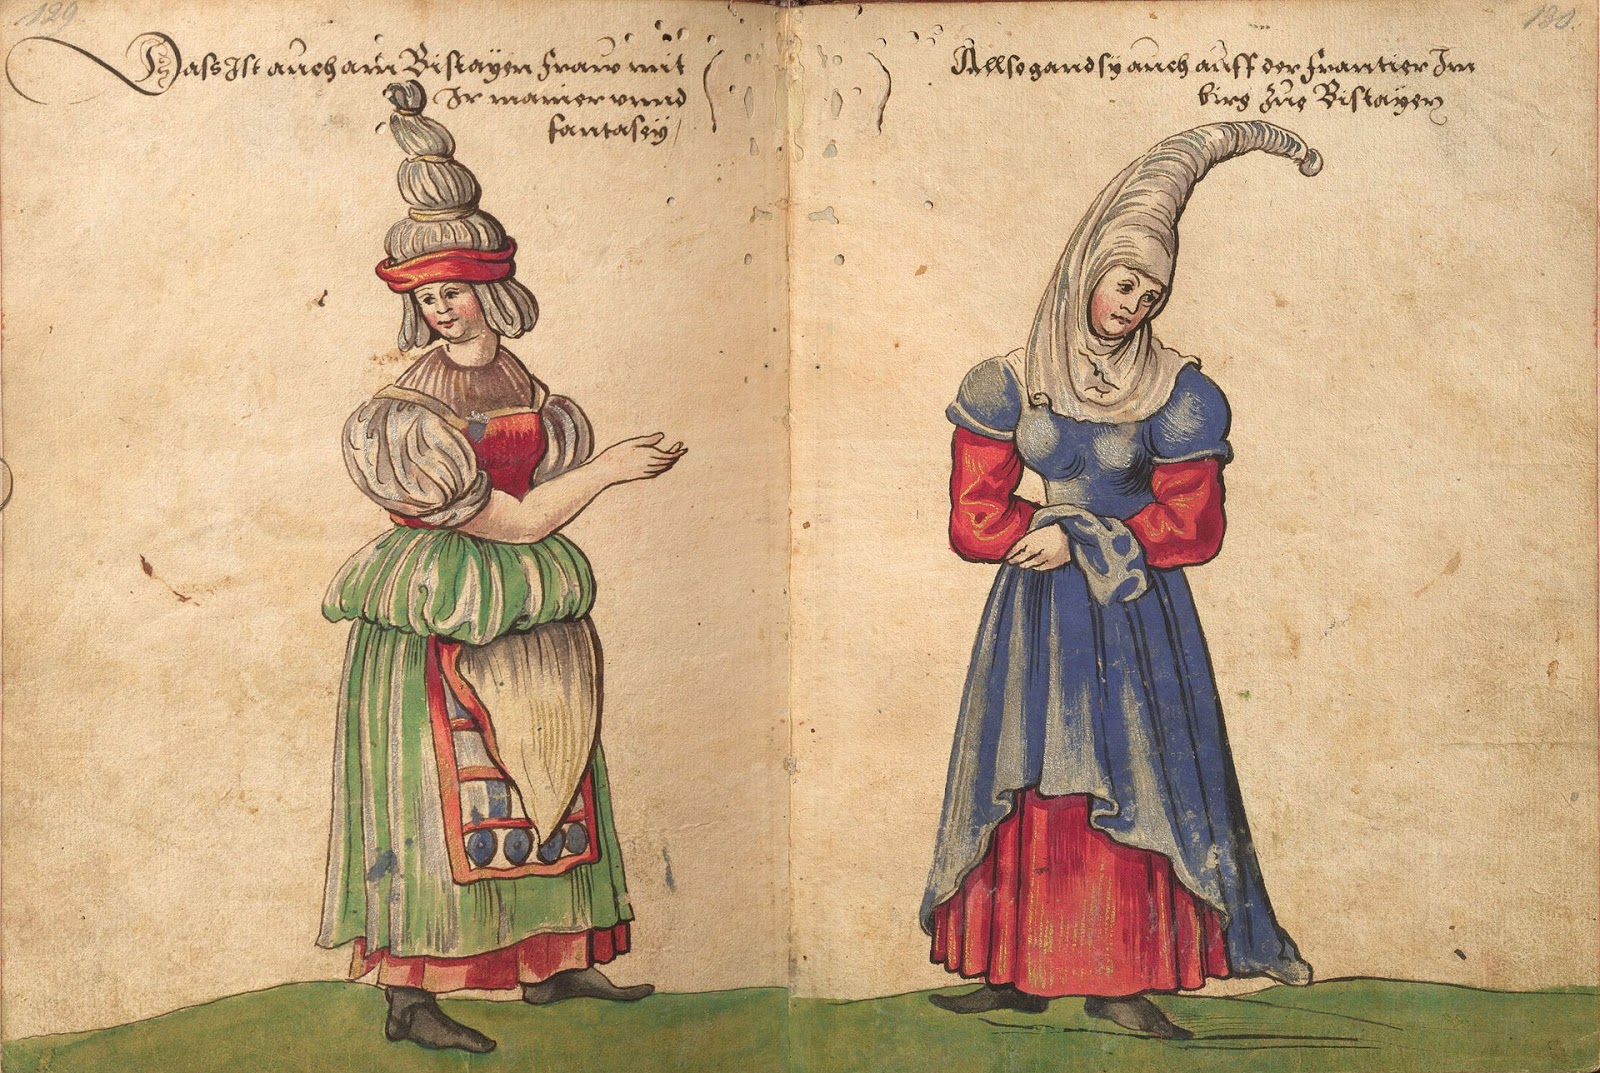 129
Dass Ist auch ain Biscayen fraw mit
Ir manier vnnd
fantasey /
130.
Allso gand sy auch auff der frantier Im
birg Zue Biscayen